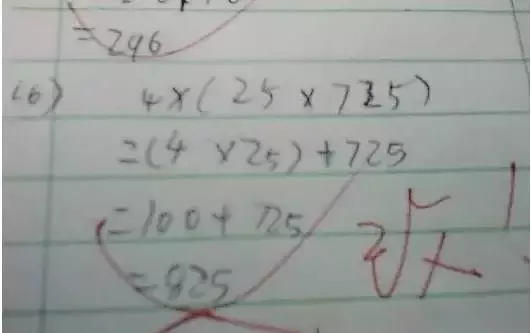 =296
(6) 4×(25×725)
=(4×25)+725
=100+725
=825